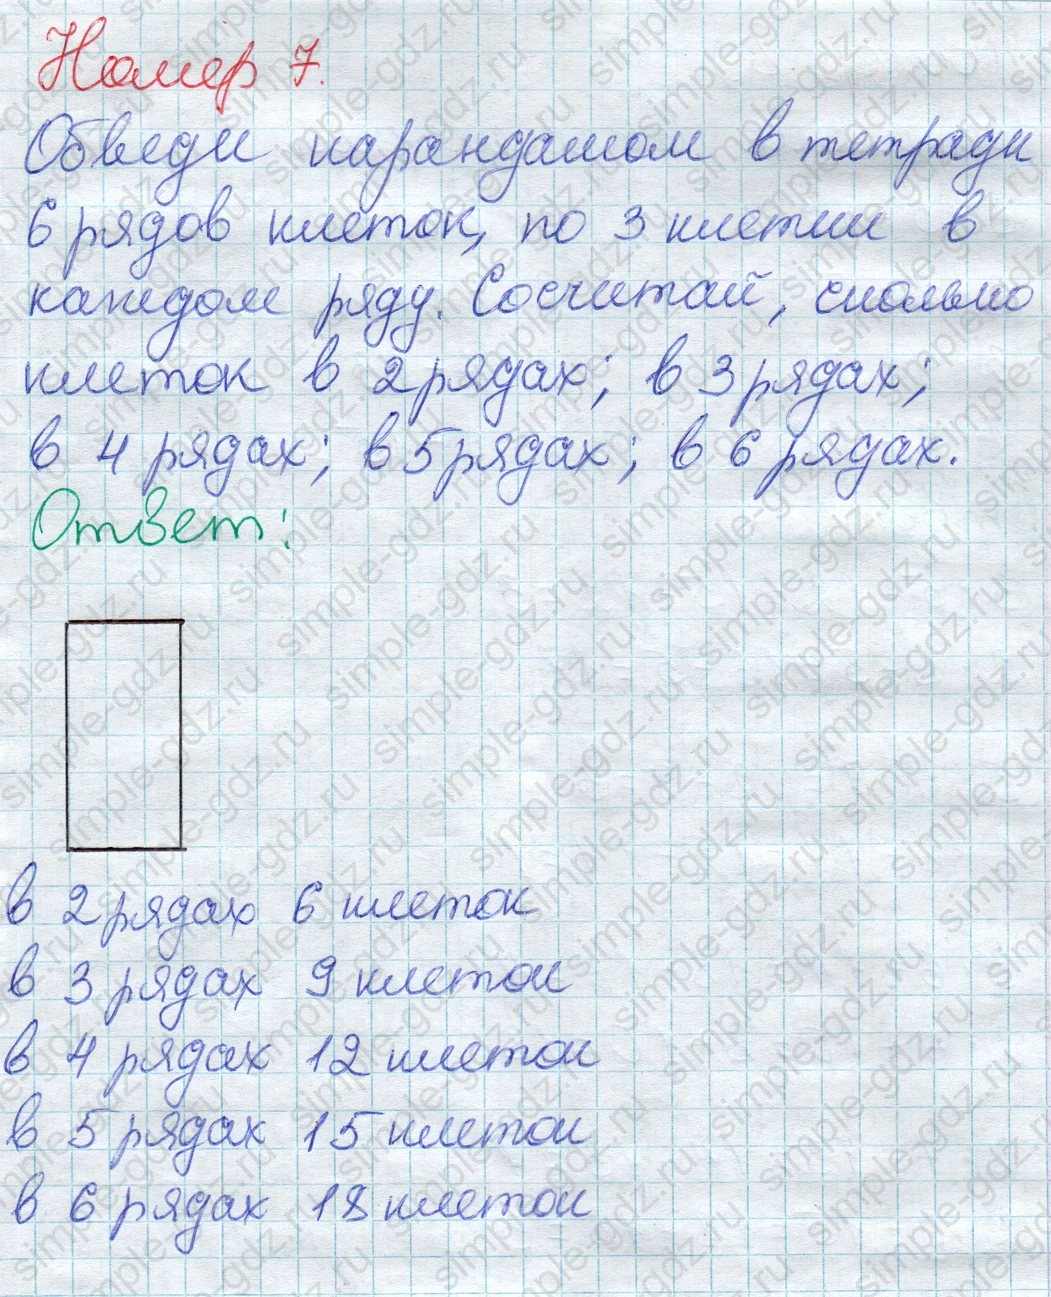 Номер 7.
Обведи карандашом в тетради
6 рядов клеток, по 3 клетки в
каждом ряду. Сосчитай, сколько
клеток в 2 рядах; в 3 рядах;
в 4 рядах; в 5 рядах; в 6 рядах.
Ответ:
в 2 рядах 6 клеток
в 3 рядах 9 клеток
в 4 рядах 12 клеток
в 5 рядах 15 клеток
в 6 рядах 18 клеток
simple-gdz.ru